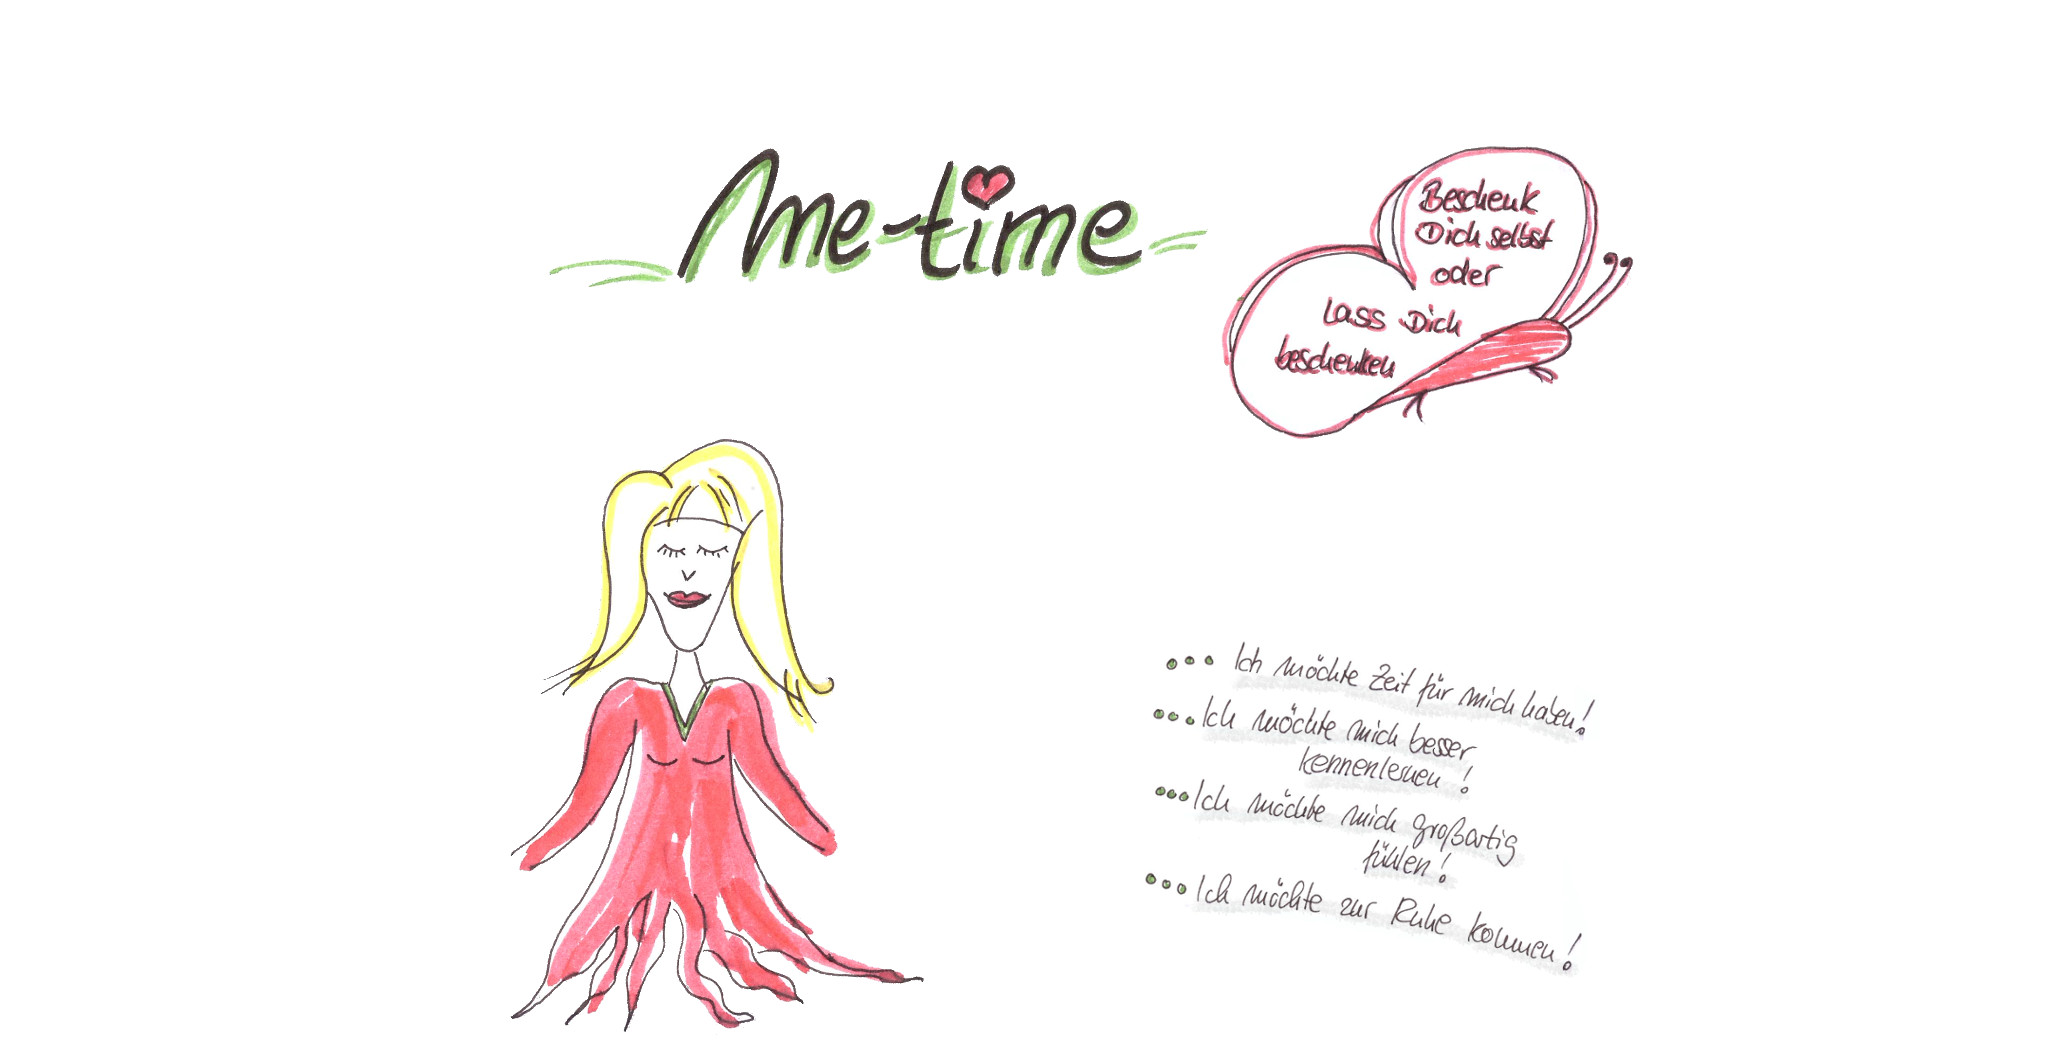 me-time
Beschenk
Dich selbst
oder
Lass Dich
beschenken
... Ich möchte Zeit für mich haben!
... Ich möchte mich besser
kennenlernen!
... Ich möchte mich großartig
fühlen!
... Ich möchte zur Ruhe kommen!